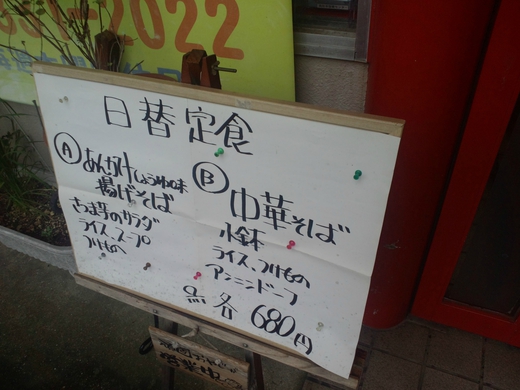 -2022
日替定食
Ⓐ あんかけしょうゆ味
揚げそば
さつま芋のサラダ
ライス、スープ
つけもの
Ⓑ 中華そば
小鉢
ライス、つけもの
アンニンドーフ
各680円